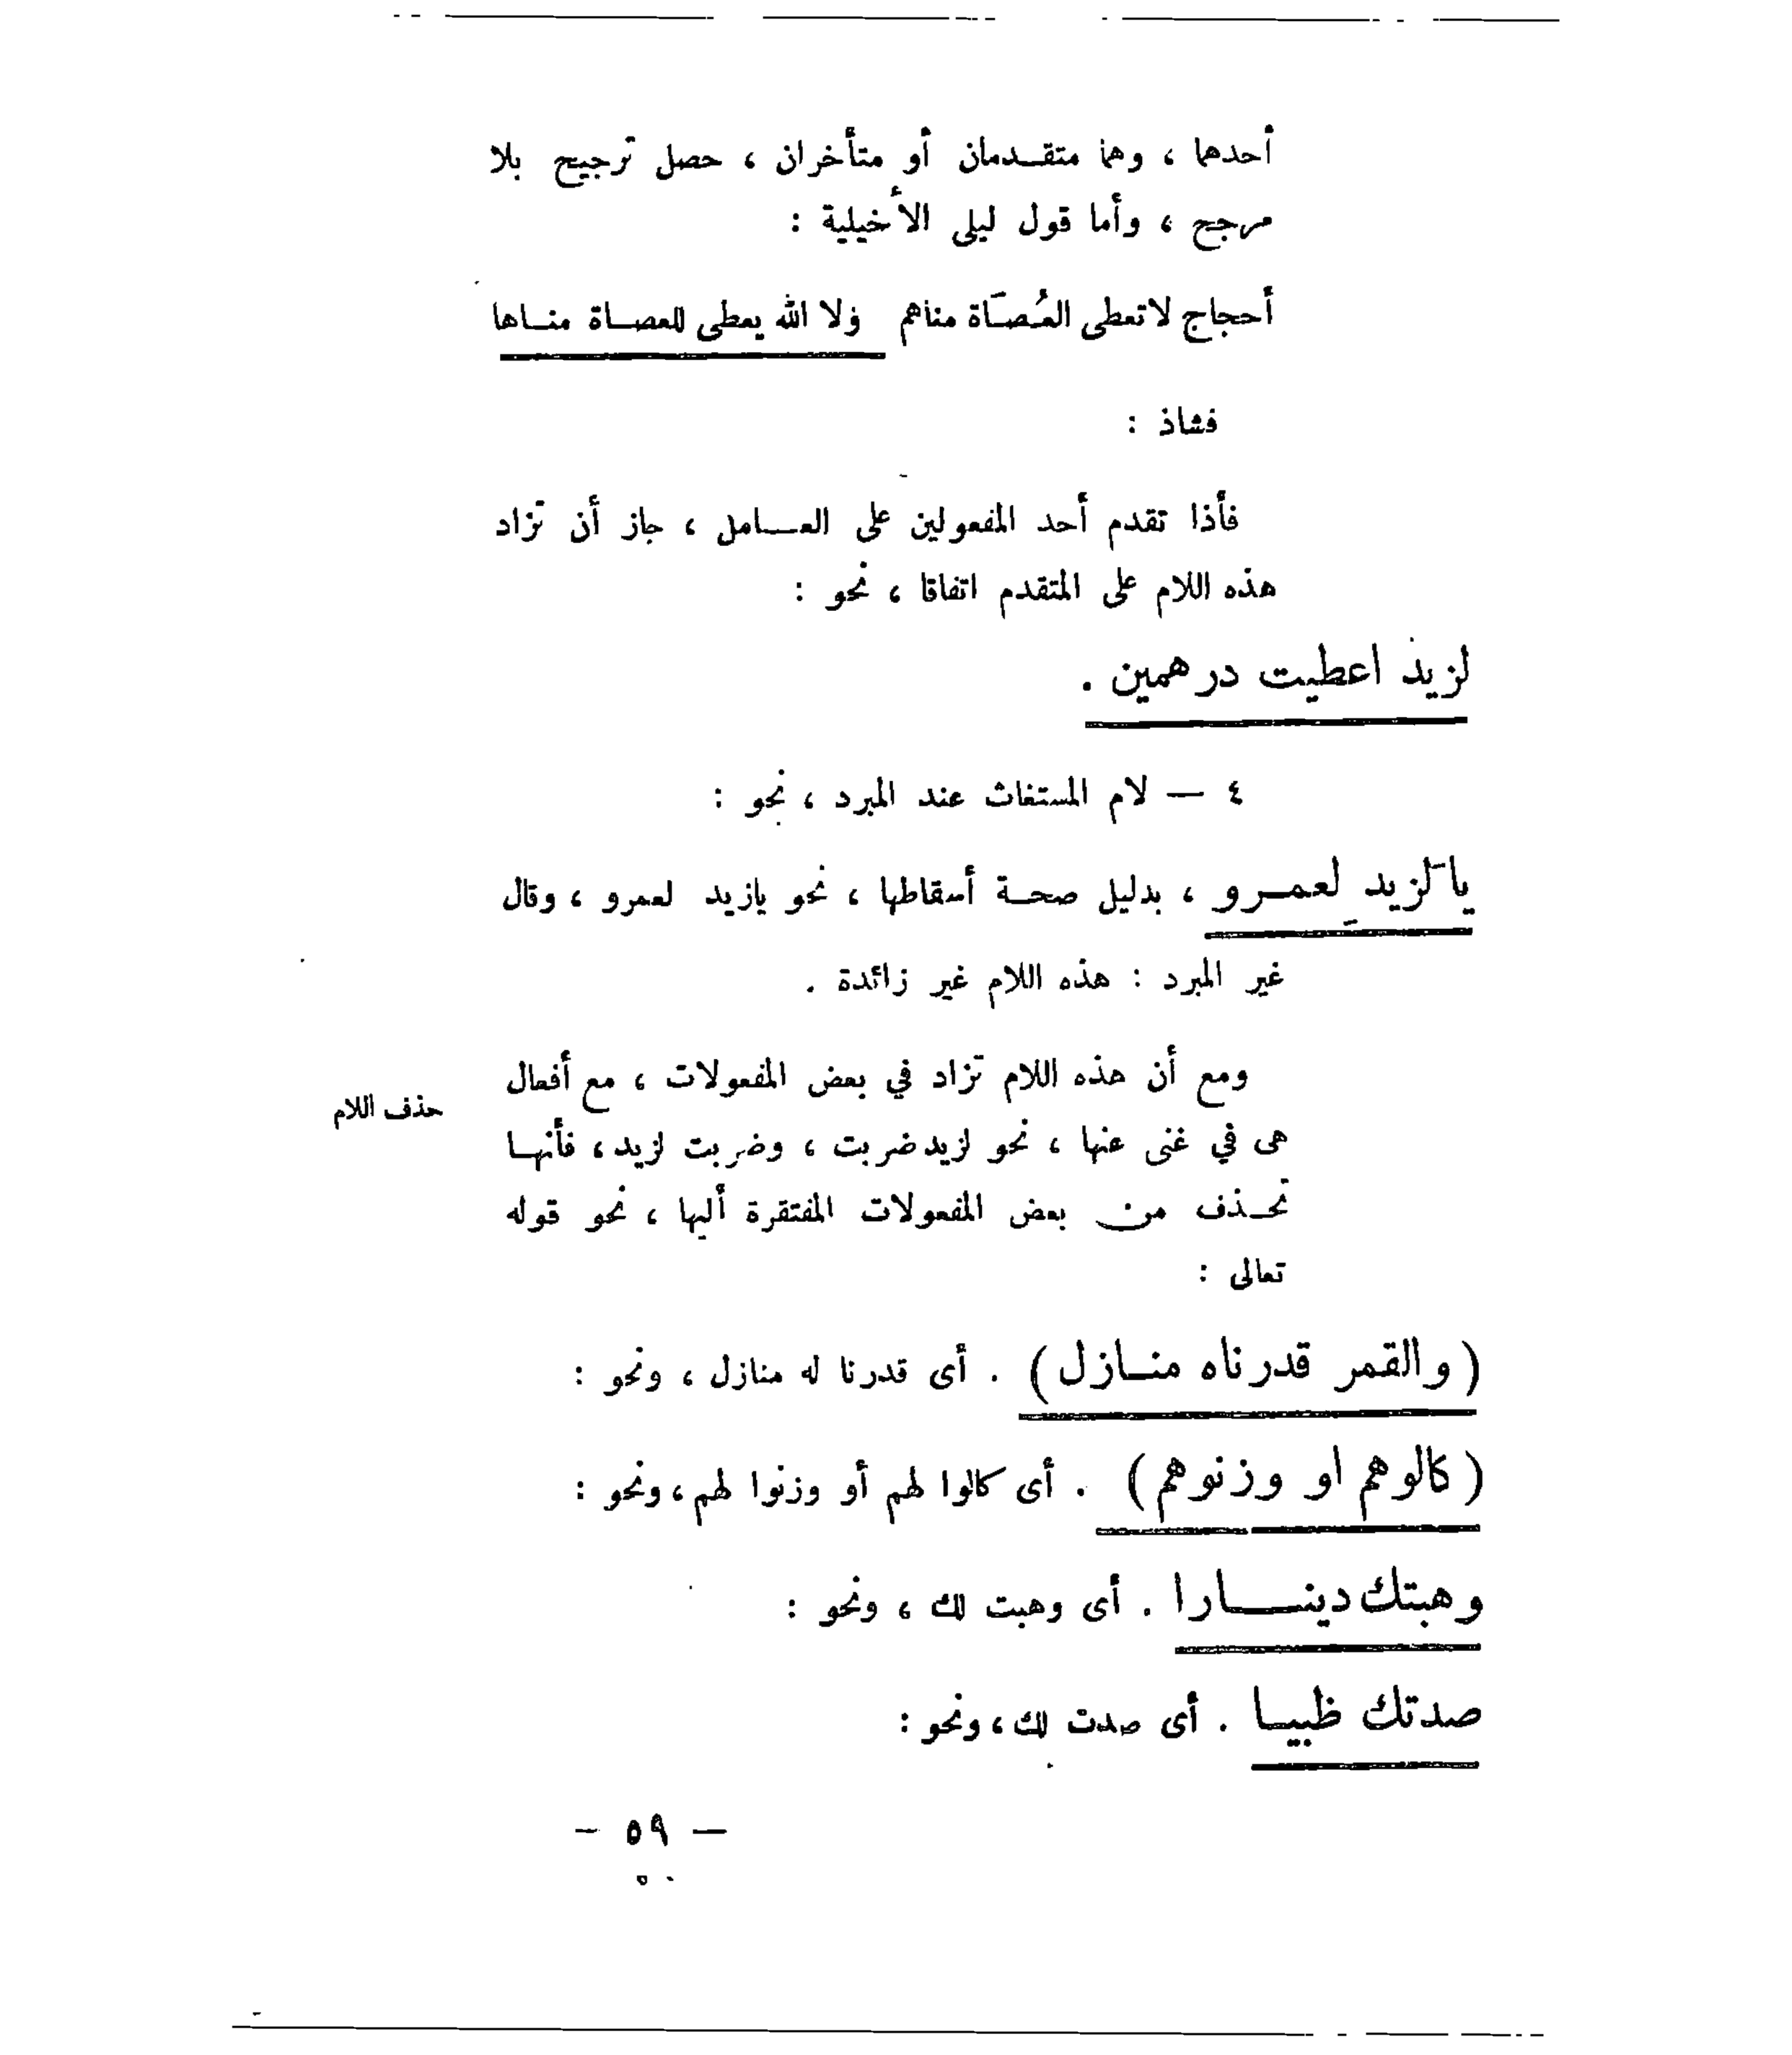 أحدهما ، وهما متقدمان أو متأخران ، حصل ترجيح بلا
مرجح ، وأما قول ليلى الأخيلية :
أحجاج لا تعطى العُصَاة مناهم ولا الله يعطى للعصاة مناها
فشاذ :
فأذا تقدم أحد المفعولين على العامل ، جاز أن تزاد
هذه اللام على المتقدم اتفاقا ، نحو :
لزيد اعطيت درهمين .
٤ — لام المستغاث عند المبرد ، نحو :
يا لَزيد لِعمرو ، بدليل صحة أسقاطها ، نحو يازيد لعمرو ، وقال
غير المبرد : هذه اللام غير زائدة .
ومع أن هذه اللام تزاد في بعض المفعولات ، مع أفعال
حذف اللام
هى في غنى عنها ، نحو لزيد ضربت ، وضربت لزيد ، فأنها
تحذف من بعض المفعولات المفتقرة أليها ، نحو قوله
تعالى :
( والقمر قدرناه منازل ) . أى قدرنا له منازل ، ونحو :
( كالوهم او وزنوهم ) . أى كالوا لهم أو وزنوا لهم ، ونحو :
وهبتك دينارا . أى وهبت لك ، ونحو :
صدتك ظبيا . أى صدت لك ، ونحو :
— ٥٩ —